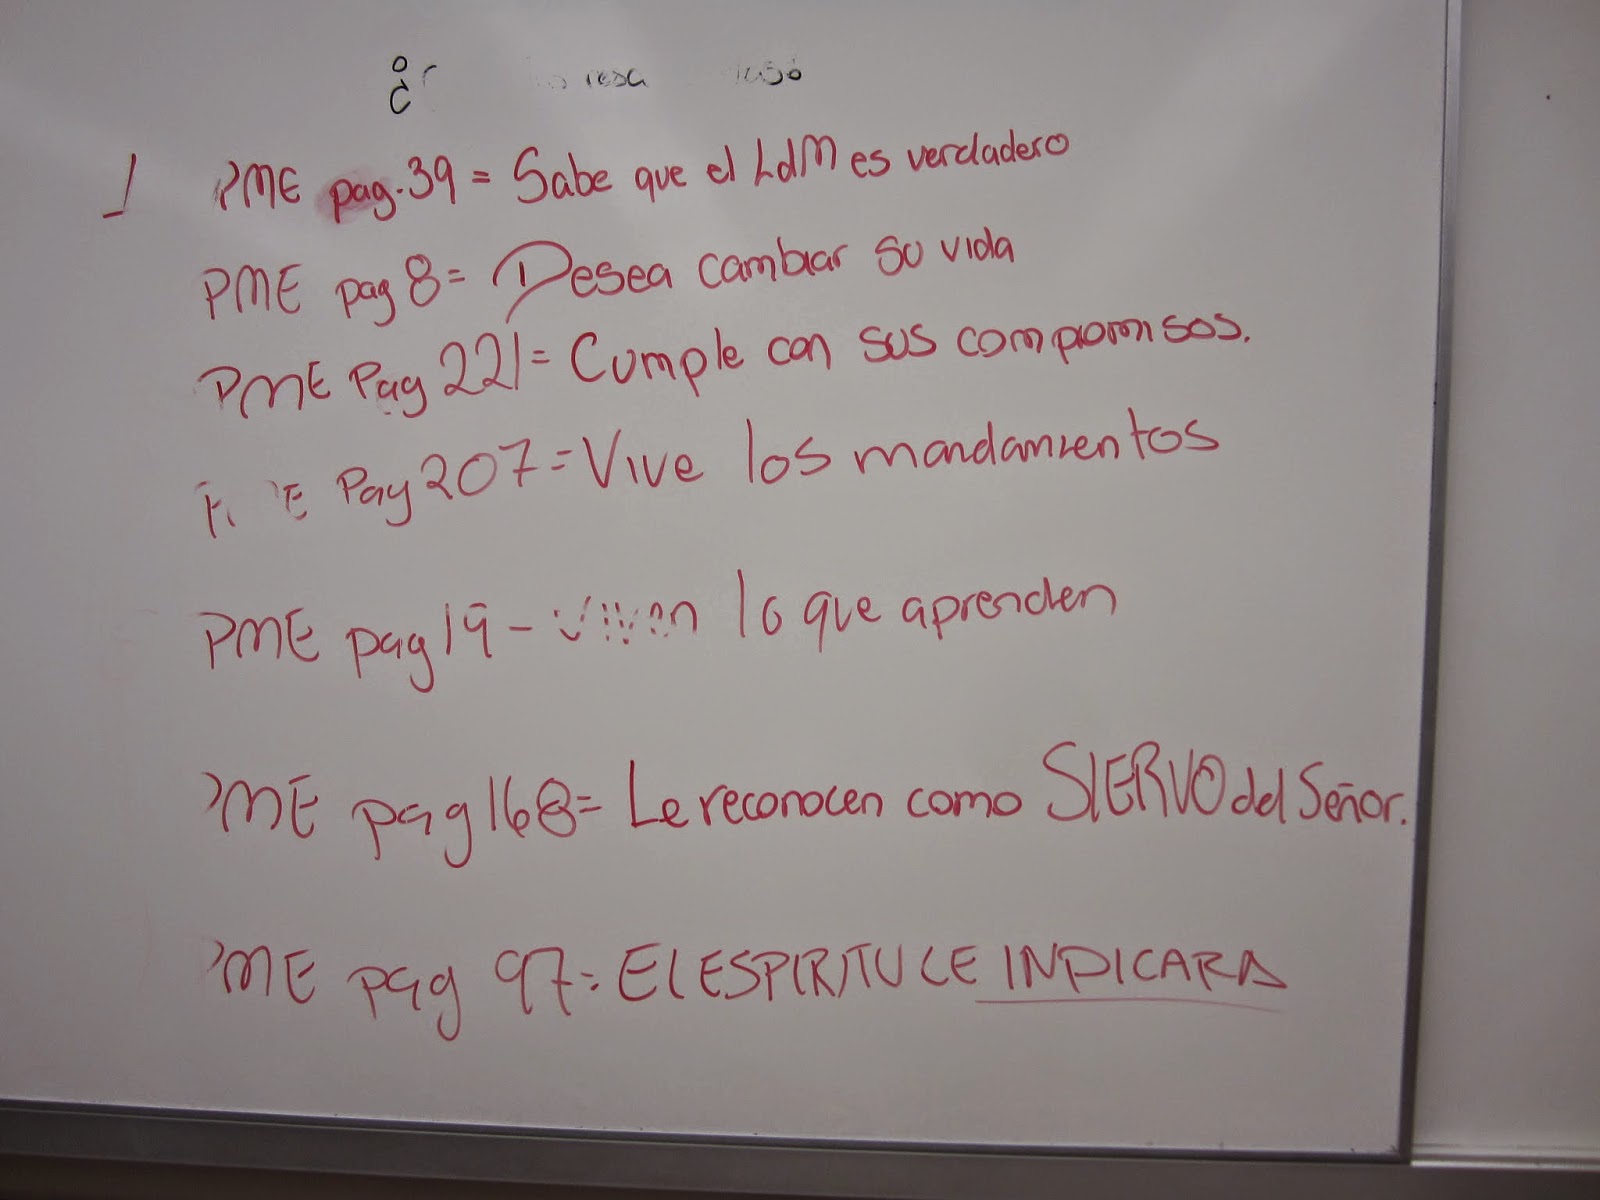 PME pag. 39 = Sabe que el LdM es verdadero
PME pag 8 = Desea cambiar su vida
PME Pag 221 = Cumple con sus compromisos.
E Pag 207 = Vive los mandamientos
PME pag 19 - viven lo que aprenden
PME pag 168 = Le reconocen como SIERVO del Señor.
PME pag 97 = El ESPIRITU LE INDICARA